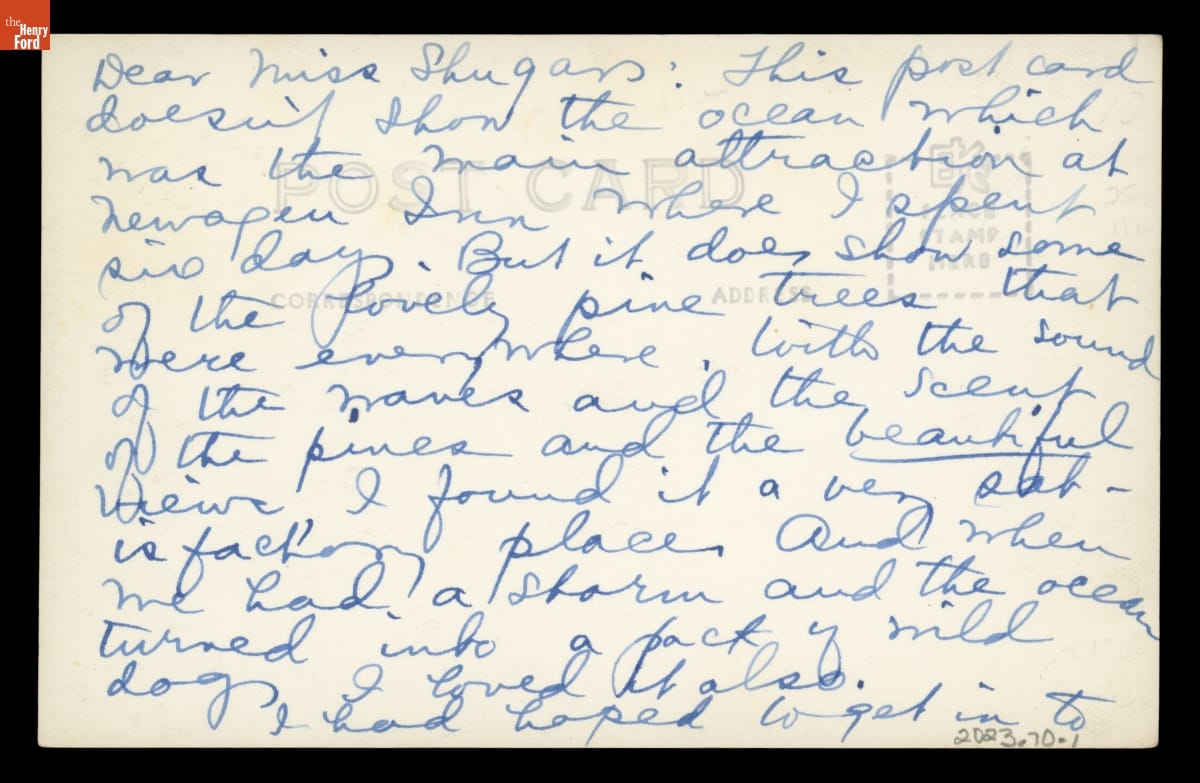 the
Henry
Ford
Dear Miss Shugars: This post card
doesn't show the ocean which
was the main attraction at
Newagen Inn where I spent
six days. But it does show some
of the lovely pine trees that
were everywhere. With the sound
of the waves and the scent
of the pines and the beautiful
views I found it a very sat-
isfactory place. And when
we had a storm and the ocean
turned into a pack of wild
dogs I loved it also.
I had hoped to get in to
POST CARD
CORRESPONDENCE
ADDRESS
PLACE
STAMP
HERE
2023.70.1